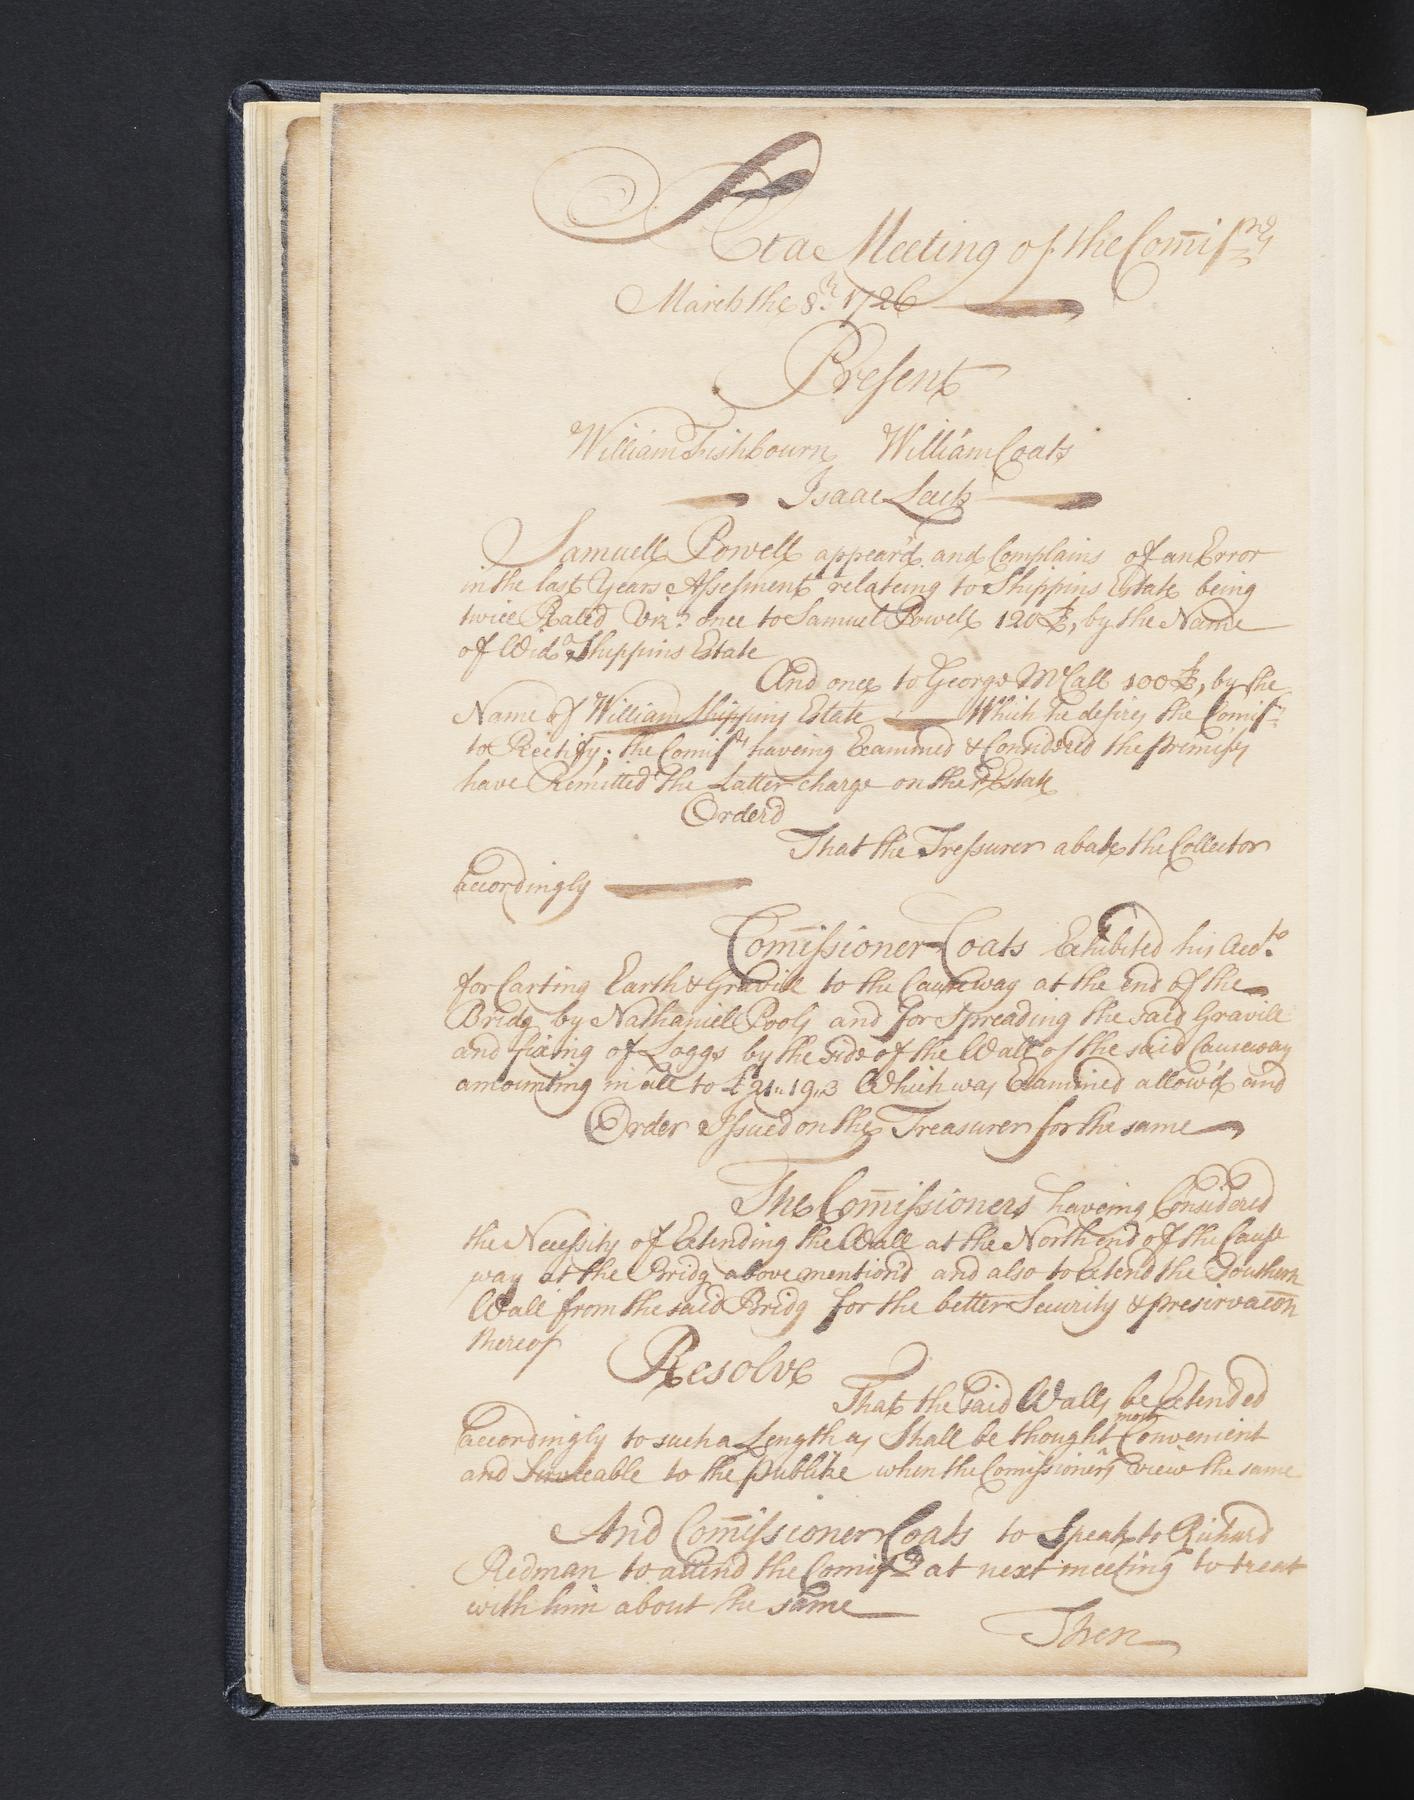 Att a Meeting of the Com̄iſs.rs
March the 8.th 1726
Preſent
William Fishbourn William Coats
Isaac Leech
Samuell Powell appear'd and Complains of an Error
in the last Years Aſseſment relateing to Shippins Estate being
twice Rated Viz.t once to Samuel Powell 120 £, by the Name
of Wid.o Shippins Estate
And once to George McCall 100 £, by the
Name of William Shippins Estate Which he desires the Comiſs.rs
to Rectify; the Comiſs.rs haveing Examined & Considered the premises
have Remitted the Latter charge on the sd Estate
Orderd
That the Treſsurer abate the Collector
accordingly
Com̄iſsioner Coats Exhibited his Acco.to
for Carting Earth & Gravile to the Causeway at the End of the
Bridg by Nathaniel Pools and for Spreading the said Gravile
and fixing of Loggs by the side of the Wall of the said Causeway
amounting in all to £ 21 „ 19 „ 3 Which was Examined allow'd and
Order Iſsued on the Treasurer for the same
The Com̄iſsioners haveing Considered
the Neceſsity of Extending the Wall at the North end of the Cauſe
way at the Bridg above mention'd and also to Extend the Southern
Wall from the said Bridg for the better Security & preservac̄on
thereof
Resolve
That the said Walls be Extended
accordingly to such a Length as Shall be thought most Convenient
and Serviceable to the publike when the Com̄iſsioners view the same
And Com̄iſsioner Coats to Speak to Richard
Redman to attend the Comiſs.rs at next meeting to treat
with him about the same
Then